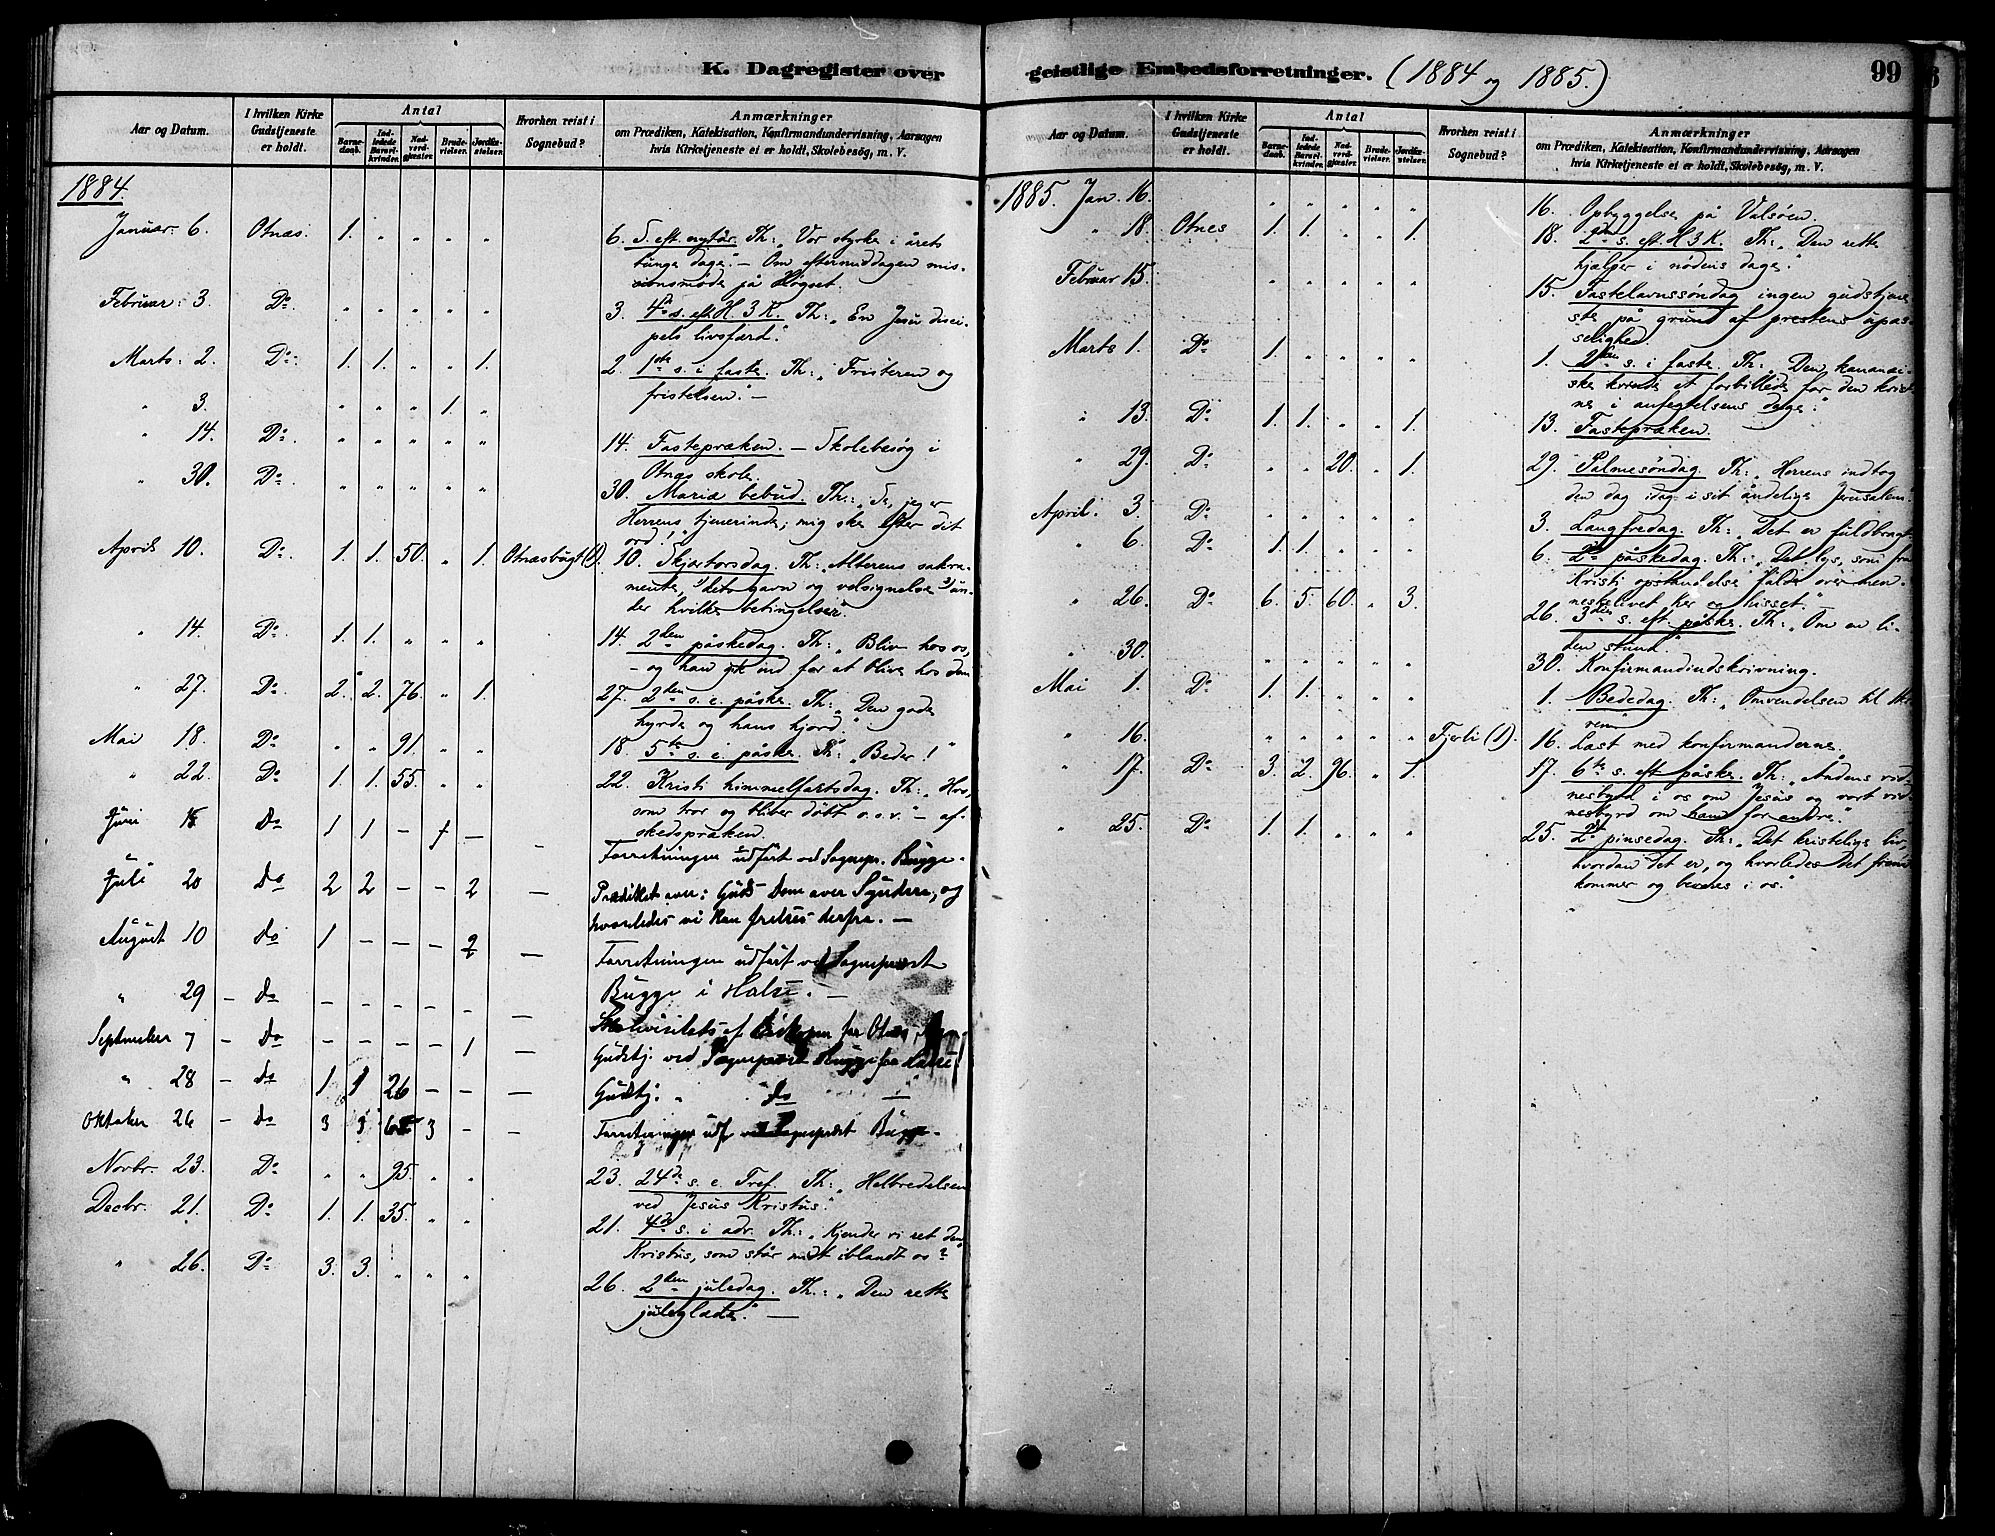 K. Dagregister over
Aar og Datum.
I hvilken Kirke Gudstjeneste er holdt.
Antal
Barnedaab.
Indledede Barselkvinder.
Nadverdgjæster.
Brudevielser.
Jordfæstelser.
Hvorhen reist i Sognebud?
Anmærkninger
om Prædiken, Katekisation, Konfirmandundervisning, Aarsagen
hvis Kirketjeneste ei er holdt, Skolebesøg, m. V.
1884.
Januar: 6. Otnæs. 1. " " " " 6. S. eft. nytår. Th: "Vor styrke i årets
tunge dage". — Om eftermiddagen mis-
sionsmöde på Högset.
Februar: 3. Do " " " " " 3. 4de s. eft. H. 3 K. Th: "En Jesu disci-
pels livsfærd."
Marts: 2. Do 1. 1. " " 1. 2. 1ste s. i faste. Th: "Fristeren og
fristelsen." —
" 3. " " " 1. "
" 14. Do " " " " " 14. Fastepræken. — Skolebesøg i
Otnæs skole.
" 30. Do " " " " " 30. Mariæ bebud. Th: "Se, jeg er
Herrens tjenerinde; mig ske efter dit
ord!"
April 10. Do 1. 1. 50. " 1. Otnæsbugt (1). 10. Skjærtorsdag. Th: "Alterens sakra-
mente, dets gavn og velsignelse un-
der hvilke betingelser".
" 14. Do 1. 1. " " " 14. 2den påskedag. Th: "Bliv hos os,
— og han gik ind for at blive hos dem
" 27. Do 2. 2. 76. " 1. 27. 2den s. e. påske. Th: "Den gode
hyrde og hans hjord."
Mai 18. Do " " 91. " " 18. 5te s. e. påske. Th: "Beder!"
" 22. Do 1. 1. 55. " " 22. Kristi himmelfartsdag. Th: "Hvo,
som tror og bliver döbt o.s.v." — af-
skedspræken.
Juni 15 Do 1 1 — 1 — — Forretningen udført ved Sognepr. Bugge.
Juli 20 Do 2 2 — — 2 — Prædiket over: Guds Dom over Syndere, og
hvorledes vi kan frelses derfra. —
August 10 Do 1 — — — 2 — Forretningen udført ved Sognepræst
Bugge i Halse. —
" 29 — Do — — — — — —
September 7 — Do — — — — 1 — Gudstj. ved Sognepræst Bugge fra Halse
" 28 — Do 1 1 26 — — — Gudstj. " Do —
Oktober 26 — Do 3 3 3 — — Forretninger udf. ved Sognepræst Bugge.
Novbr. 23. Do " " 95. " " 23. 24de s. e. Tref. Th: "Helbredelsen
ved Jesus Kristus."
Decbr. 21. Do 1. 1. 35. " " 21. 4de s. i adv. Th: "Kjender vi ret den
Kristus, som står midt iblandt os?
" 26. Do 3. 3. " " " 26. 2den juledag. Th: "Den rette
juleglæde." —
geistlige Embedsforretninger. (1884 og 1885.)
99
Aar og Datum.
I hvilken Kirke Gudstjeneste er holdt.
Antal
Barnedaab.
Indledede Barselkvinder.
Nadverdgjæster.
Brudevielser.
Jordfæstelser.
Hvorhen reist i Sognebud?
Anmærkninger
om Prædiken, Katekisation, Konfirmandundervisning, Aarsagen
hvis Kirketjeneste ei er holdt, Skolebesøg, m. V.
1885. Jan. 16. " " " " " 16. Opbyggelse på Valsöen.
" 18. Otnes 1. 1. " " 1. 18. 2den s. eft. H 3 K. Th: "Den rette
hjælper i nödens dage."
Februar 15. " " " " " 15. Fastelavnssöndag ingen gudstjene-
ste på grund af prestens upas-
selighed.
Marts 1. Do 1. " " " " 1. 2den s. i faste. Th: "Den kananæi-
ske kvinde et forbillede for den krist-
ne i anfegtelsens dage."
" 13. Do 1. 1. " " 1. 13. Fastepræken.
" 29. Do " " 20. " 1. 29. Palmesöndag. Th: "Herrens indtog
den dag idag i sit åndelige Jerusalem."
April. 3. Do " " " " " 3. Langfredag. Th: "Det er fuldbragt.
" 6. Do 1. 1. " " " 6. 2den påskedag. Th: "Det lys, som fra
Kristi opstandelse falder over men-
neskelivet her og hisset."
" 26. Do 6. 5. 60. " 3. 26. 3die s. eft. påske. Th: "Om en li-
den stund."
" 30. " " " " " 30. Konfirmandindskrivning.
Mai 1. Do 1. 1. " " " 1. Bededag. Th: "Omvendelsen til Her-
ren"
" 16. " " " " " Fjerli (1). 16. Læst med konfirmanderne.
" 17. Do 3. 2. 96. " 1. 17. 6te s. eft påske. Th: "Åndens vid-
nesbyrd i os om Jesus og vort vid-
nesbyrd om ham for andre."
" 25. Do 1. 1. " " " 25. 2den pinsedag. Th: "Det kristelige liv,
hvordan det er, og hvorledes det frem-
kommer og bevares i os."